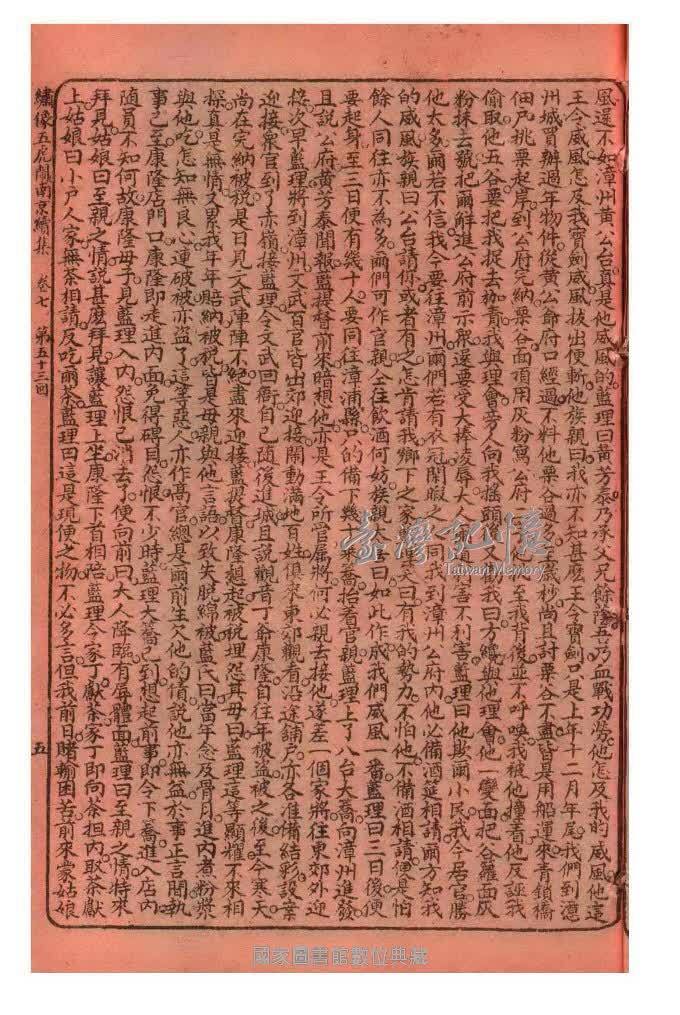 風還不如漳州黃公台真是他威風的藍理曰黃芳泰乃承父兄餘蔭吾乃血戰功勞他怎及我的威風他這
王令威風怎及我寳劍威風拔出便斬他族親曰我亦不知甚麽王令寳劍只是上年十二月年尾我們到漳
州城買辦過年物件從黃公爺府口經過不料他粟谷過多歲杪尚且討粟谷不盡皆是用船運來青鎖橋
佃戶挑粟起岸到公府完納粟谷面頭用灰粉寫公府 至我背後並不呼喚我被他撞着他反誣我
偷取他五谷要把我捉去枷責我與理會旁人向我搖頭 後又 我曰方纔與他理會他一變面把谷羅面灰
粉抹去號把爾解進公府前示衆還要受大捧凌辱大 人 善不利害藍理曰他欺爾小民我今居官勝
他太多爾若不信我今要往漳州爾們若有衣冠閑暇之 同我到漳州公府內他必備酒筵相請爾方知我
的威風族親曰公台請你或者有之怎肯請我鄉下之家 笑曰有我的勢力不怕他不備酒相請便是怕
餘人同往亦不為多爾們可作官親仝往飲酒何妨族親仝言曰如此作成我們威風一番藍理曰三日後便
要起身至三日便有幾十人要同往漳浦縣口的備下幾十乘喬抬着官親藍理上了八台大喬向漳州進發
且說公府黃芳泰聞報藍提督前來暗想他亦是王令所管屬將何必親去接他遂差一個家將往東郊外迎
接次早藍理將到漳州文武百官皆出郊迎接閙動滿地百姓俱來東郊觀看沿途鋪戶亦各准備結彩設案
迎接衆官到了赤嶺接藍理令文武回衙自己隨後進城且說觀音丁爺康隆自往年被盜之後至今寒天
尚在完納被稅是日見文武陣陣不絕盡來迎接藍提督康隆想起被稅埋怨其母曰藍理這等顯耀不來相
探真是無情又累我年年賠納被稅皆是母親與他言語以致失脫綿被藍氏曰當年念及骨月進內煮粉漿
與他吃怎知無良心連破被亦盜了這等惡人亦作高官總是爾前生欠他的債說他亦無益於事正言間執
事已至康隆店門口康隆即走進內面免得碍目怨恨不少時藍理大喬已到想起前事即令下喬進入店內
隨員不知何故康隆母子見藍理入內怨恨已消去了便向前曰大人降臨有辱體面藍理曰至親之情特來
拜見姑娘曰至親之情說甚麽拜見讓藍理上坐康隆下首相陪藍理令家丁獻茶家丁即向茶担內取茶獻
上姑娘曰小戶人家無茶相請反吃爾茶藍理曰這是現便之物不必多言但我前日賭輸困苦前來蒙姑娘
繡像五虎閙南京續集 卷七 第五十三回 五
臺灣記憶
Taiwan Memory
國家圖書館數位典藏